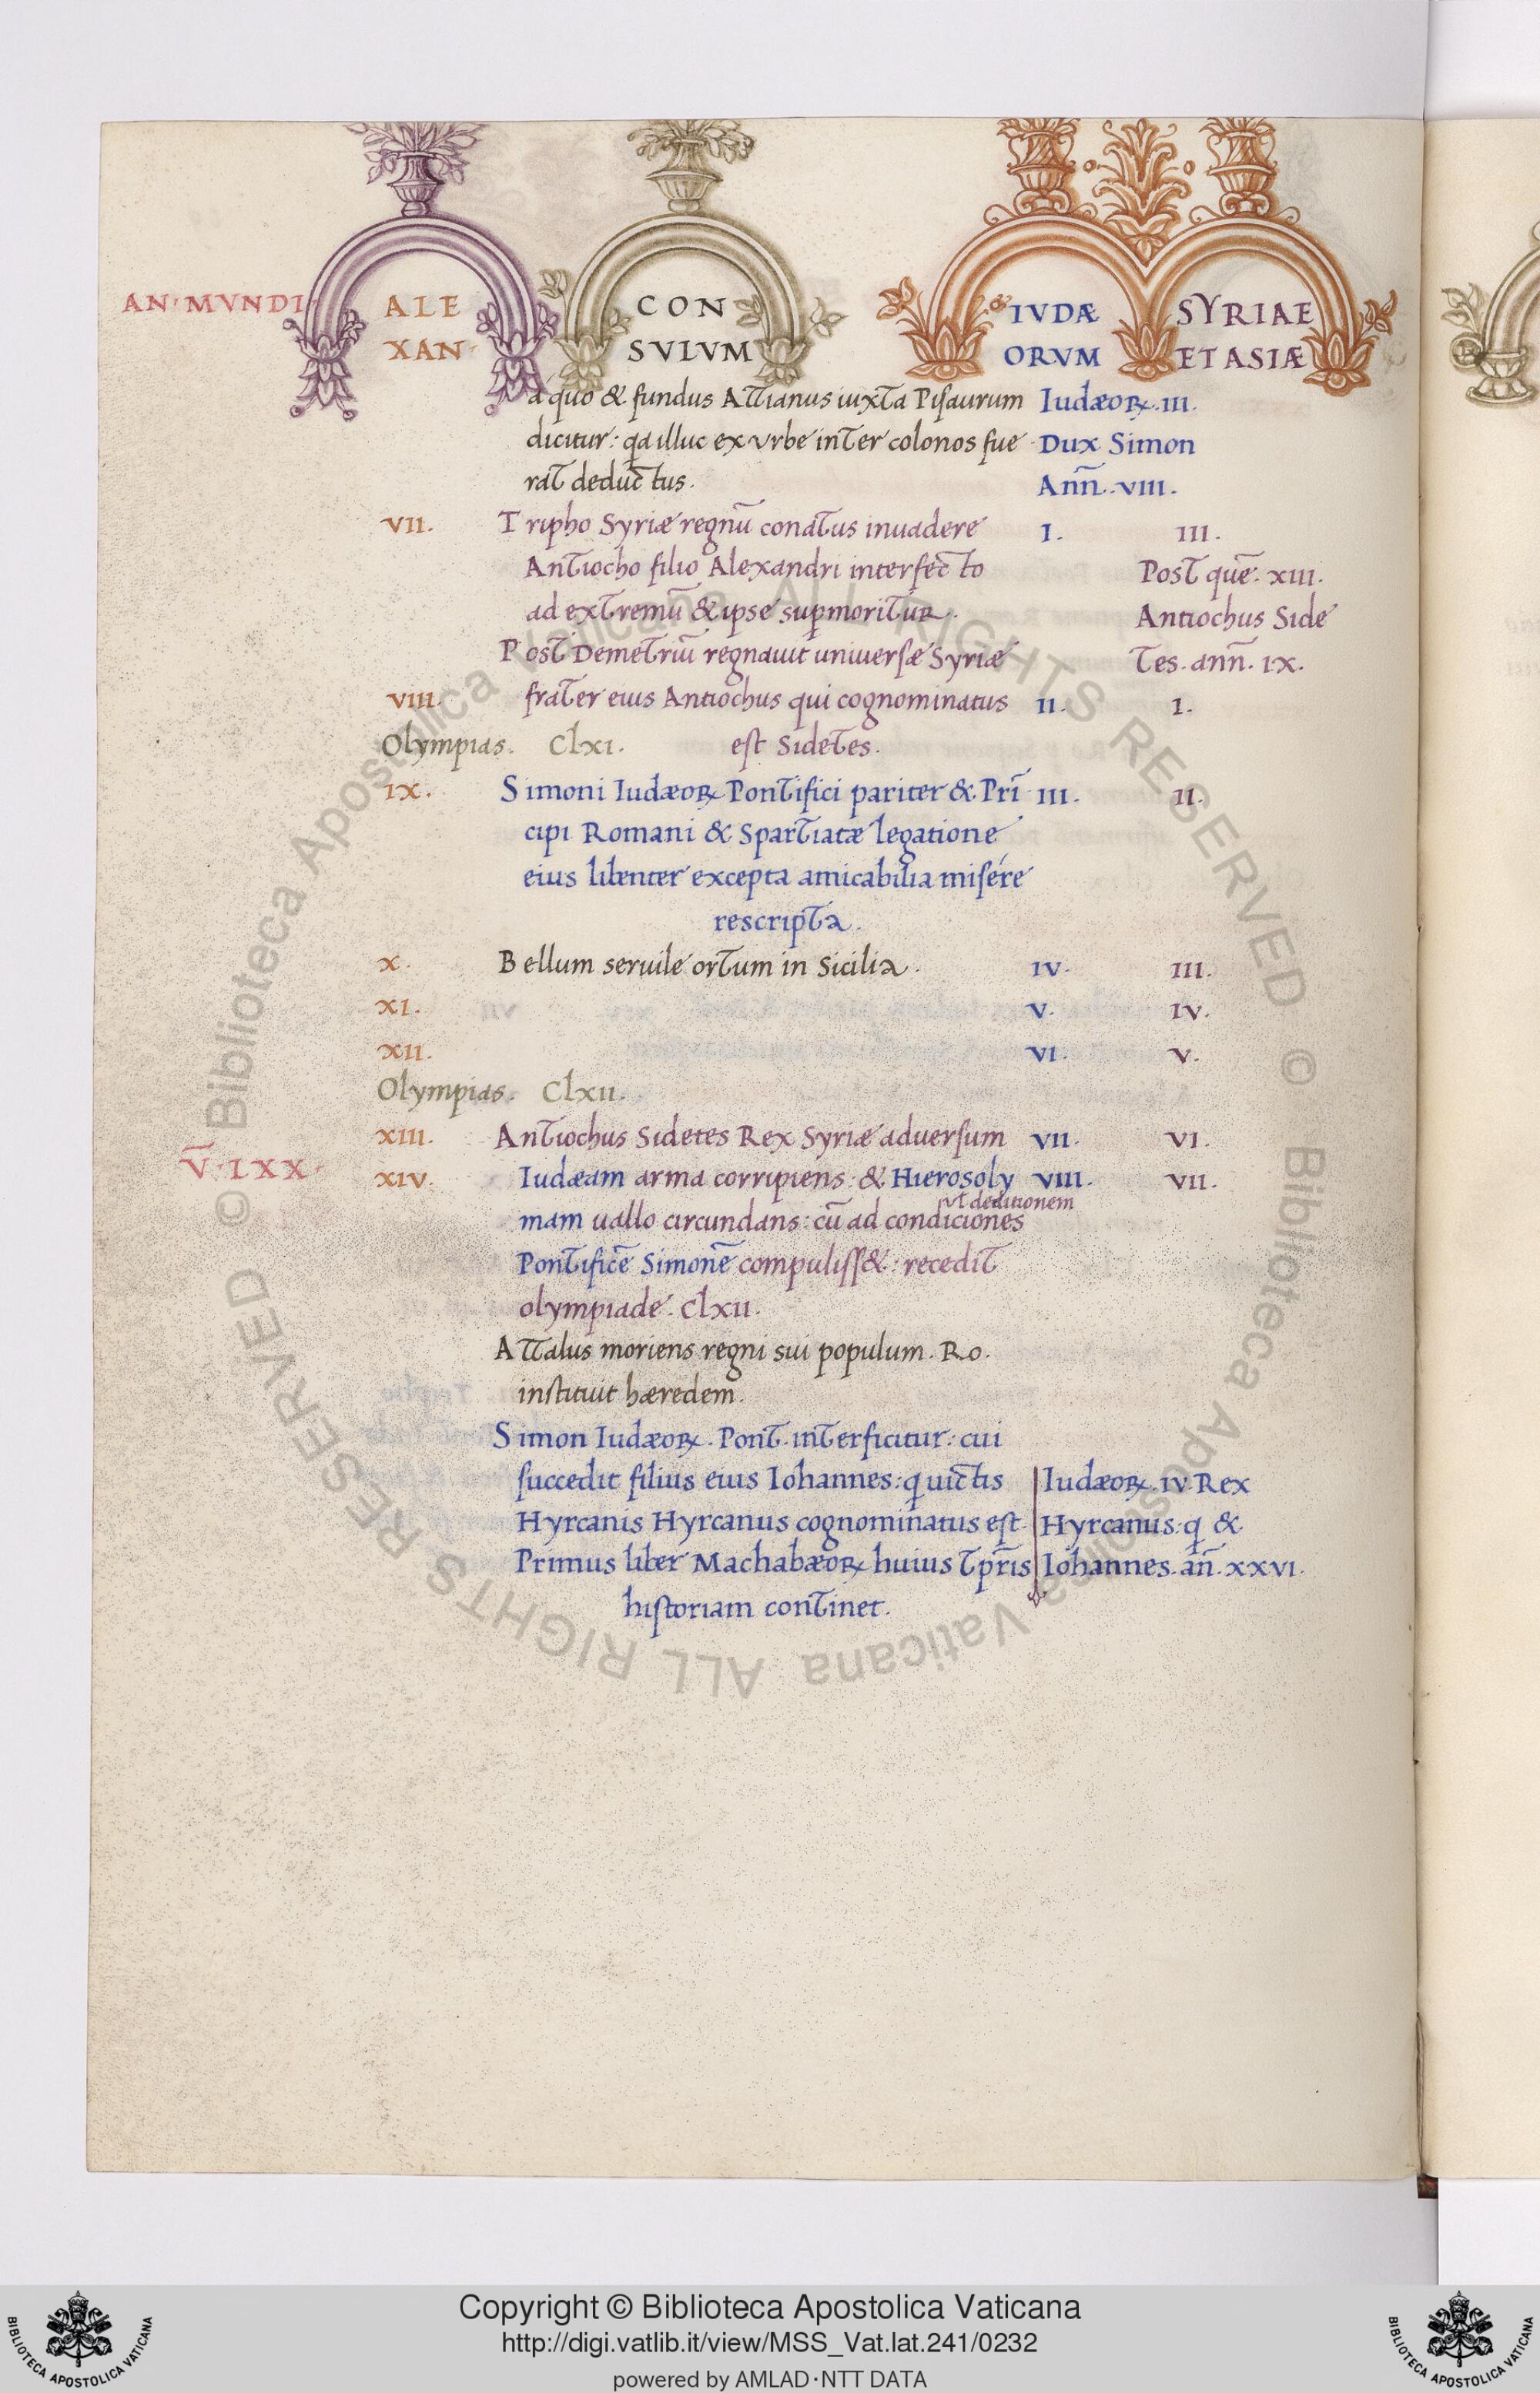 AN· MVNDI· ALE CON IVDÆ SYRIAE
XAN· SVLVM ORVM ET ASIÆ
a quo & fundus Attianus iuxta Pisaurum Iudæoꝝ. III.
dicitur: qa illuc ex vrbe inter colonos fue Dux Simon
rat deductus. Ann̄. VIII.
VII. Tripho Syriæ regnū conatus inuadere I. III.
Antiocho filio Alexandri interfecto Post quē. XIII.
ad extremū & ipse supmoritur. Antiochus Side
Post Demetriū regnauit uniuersæ Syriæ Tes. ann̄. IX.
VIII. frater eius Antiochus qui cognominatus II. I.
Olympias. Clxi. est Sidetes.
IX. Simoni Iudæoꝝ Pontifici pariter & Prī III. II.
cipi Romani & Spartiatæ legatione
eius libenter excepta amicabilia misére
rescripta.
X. Bellum seruile ortum in Sicilia. IV. III.
XI. V. IV.
XII. VI. V.
Olympias. Clxii.
XIII. Antiochus Sidetes Rex Syriæ aduersum VII. VI.
V̄·IXX· XIV. Iudæam arma corripiens: & Hierosoly VIII. VII.
vt deditionem
mam uallo circundans: cū ad condiciones
Pontificē Simonē compuliss&: recedit
olympiade. Clxii.
Attalus moriens regni sui populum. Ro.
instituit hæredem.
Simon Iudæoꝝ. Pont. interficitur: cui
succedit filius eius Iohannes: q uictis Iudæoꝝ. IV. Rex
Hyrcanis Hyrcanus cognominatus est. Hyrcanus: q &
Primus liber Machabæoꝝ huius tpr̄is Iohannes. an̄. XXVI.
historiam continet.
© Biblioteca Apostolica Vaticana ALL RIGHTS RESERVED © Biblioteca Apostolica Vaticana ALL RIGHTS RESERVED
Copyright © Biblioteca Apostolica Vaticana
http://digi.vatlib.it/view/MSS_Vat.lat.241/0232
powered by AMLAD·NTT DATA
BIBLIOTECA APOSTOLICA VATICANA
BIBLIOTECA APOSTOLICA VATICANA